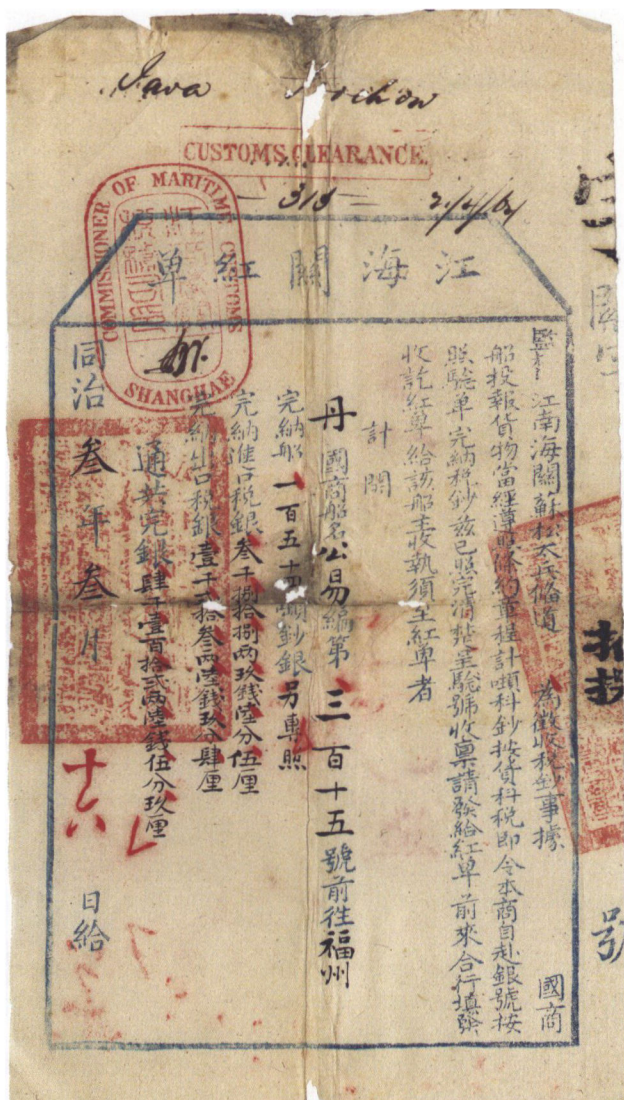 Java
CUSTOMS CLEARANCE.
315
COMMISSIONER OF MARITIME CUSTOMS
SHANGHAE
江海關紅單
監督江南海關蘇松太兵備道 為徵收稅鈔事據 國商
船投報貨物當經遵照條約章程計噸科鈔按貨科稅即令本商自赴銀號按
照驗單完納稅鈔茲已照完清
號收稟請發給紅單前來合行填發
收訖紅單給該船主收執須至紅單者
計開
丹國商船名公易編第三百十五號前往福州
完納船一百五十四噸鈔銀另專照
完納進口稅銀叁千捌拾捌兩玖錢陸分伍厘
完納出口稅銀壹千貳拾叁兩陸錢玖分肆厘
通共完銀肆千壹百拾貳兩陸錢伍分玖厘
同治叁年叁月十六日給
號